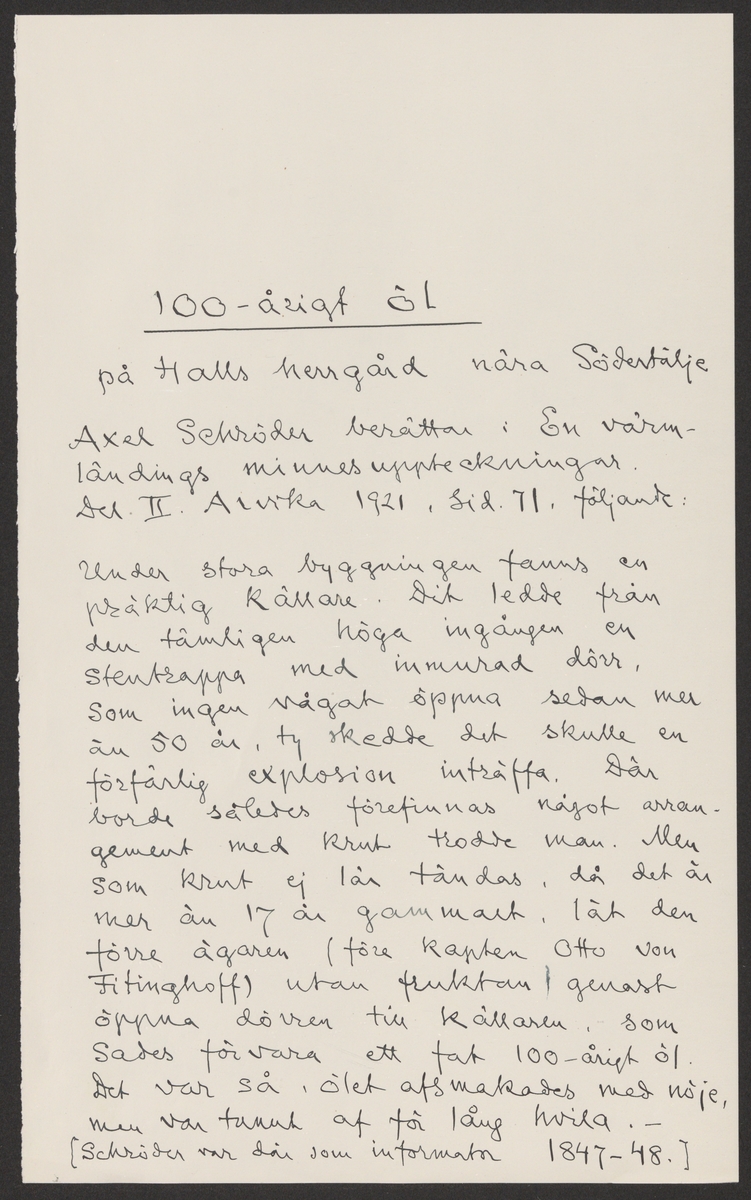 100-årigt öl
på Halls herrgård nära Södertälje
Axel Schröder berättar i En värm-
ländings minnesuppteckningar.
Del. II. Arvika 1921, sid. 71, följande:
Under stora byggningen fanns en
präktig källare. Dit ledde från
den tämligen höga ingången en
stentrappa med inmurad dörr,
som ingen vågat öppna sedan mer
än 50 år, ty skedde det skulle en
förfärlig explosion inträffa. Där
borde således förefinnas något arran-
gement med krut trodde man. Men
som krut ej lär tändas, då det är
mer än 17 år gammalt, lät den
förre ägaren (före kapten Otto von
Fitinghoff) utan fruktan genast
öppna dörren till källaren, som
sades förvara ett fat 100-årigt öl.
Det var så, ölet afsmakades med nöje,
men var tunnt af för lång hvila. -
[Schröder var där som informator 1847-48.]